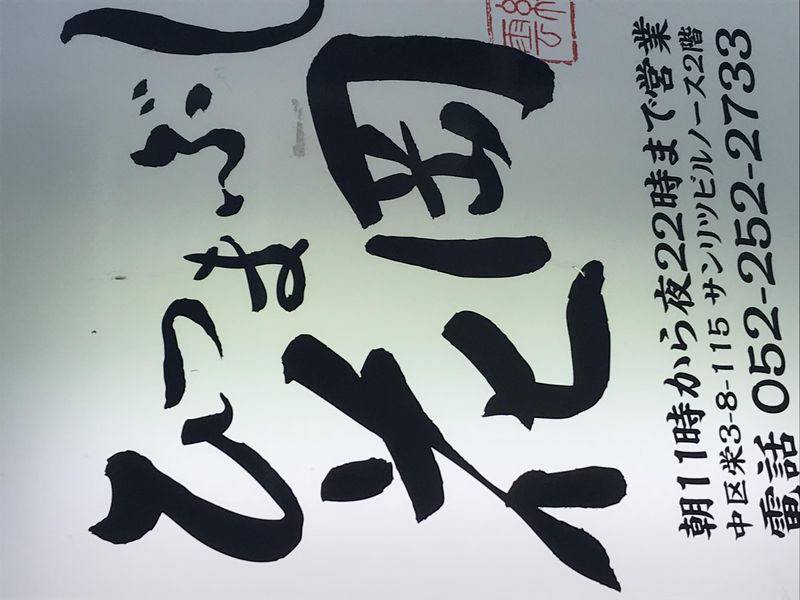 ひつまぶし
花岡
朝11時から夜22時まで営業
中区栄3-8-115 サンリツビルノース2階
電話 052-252-2733